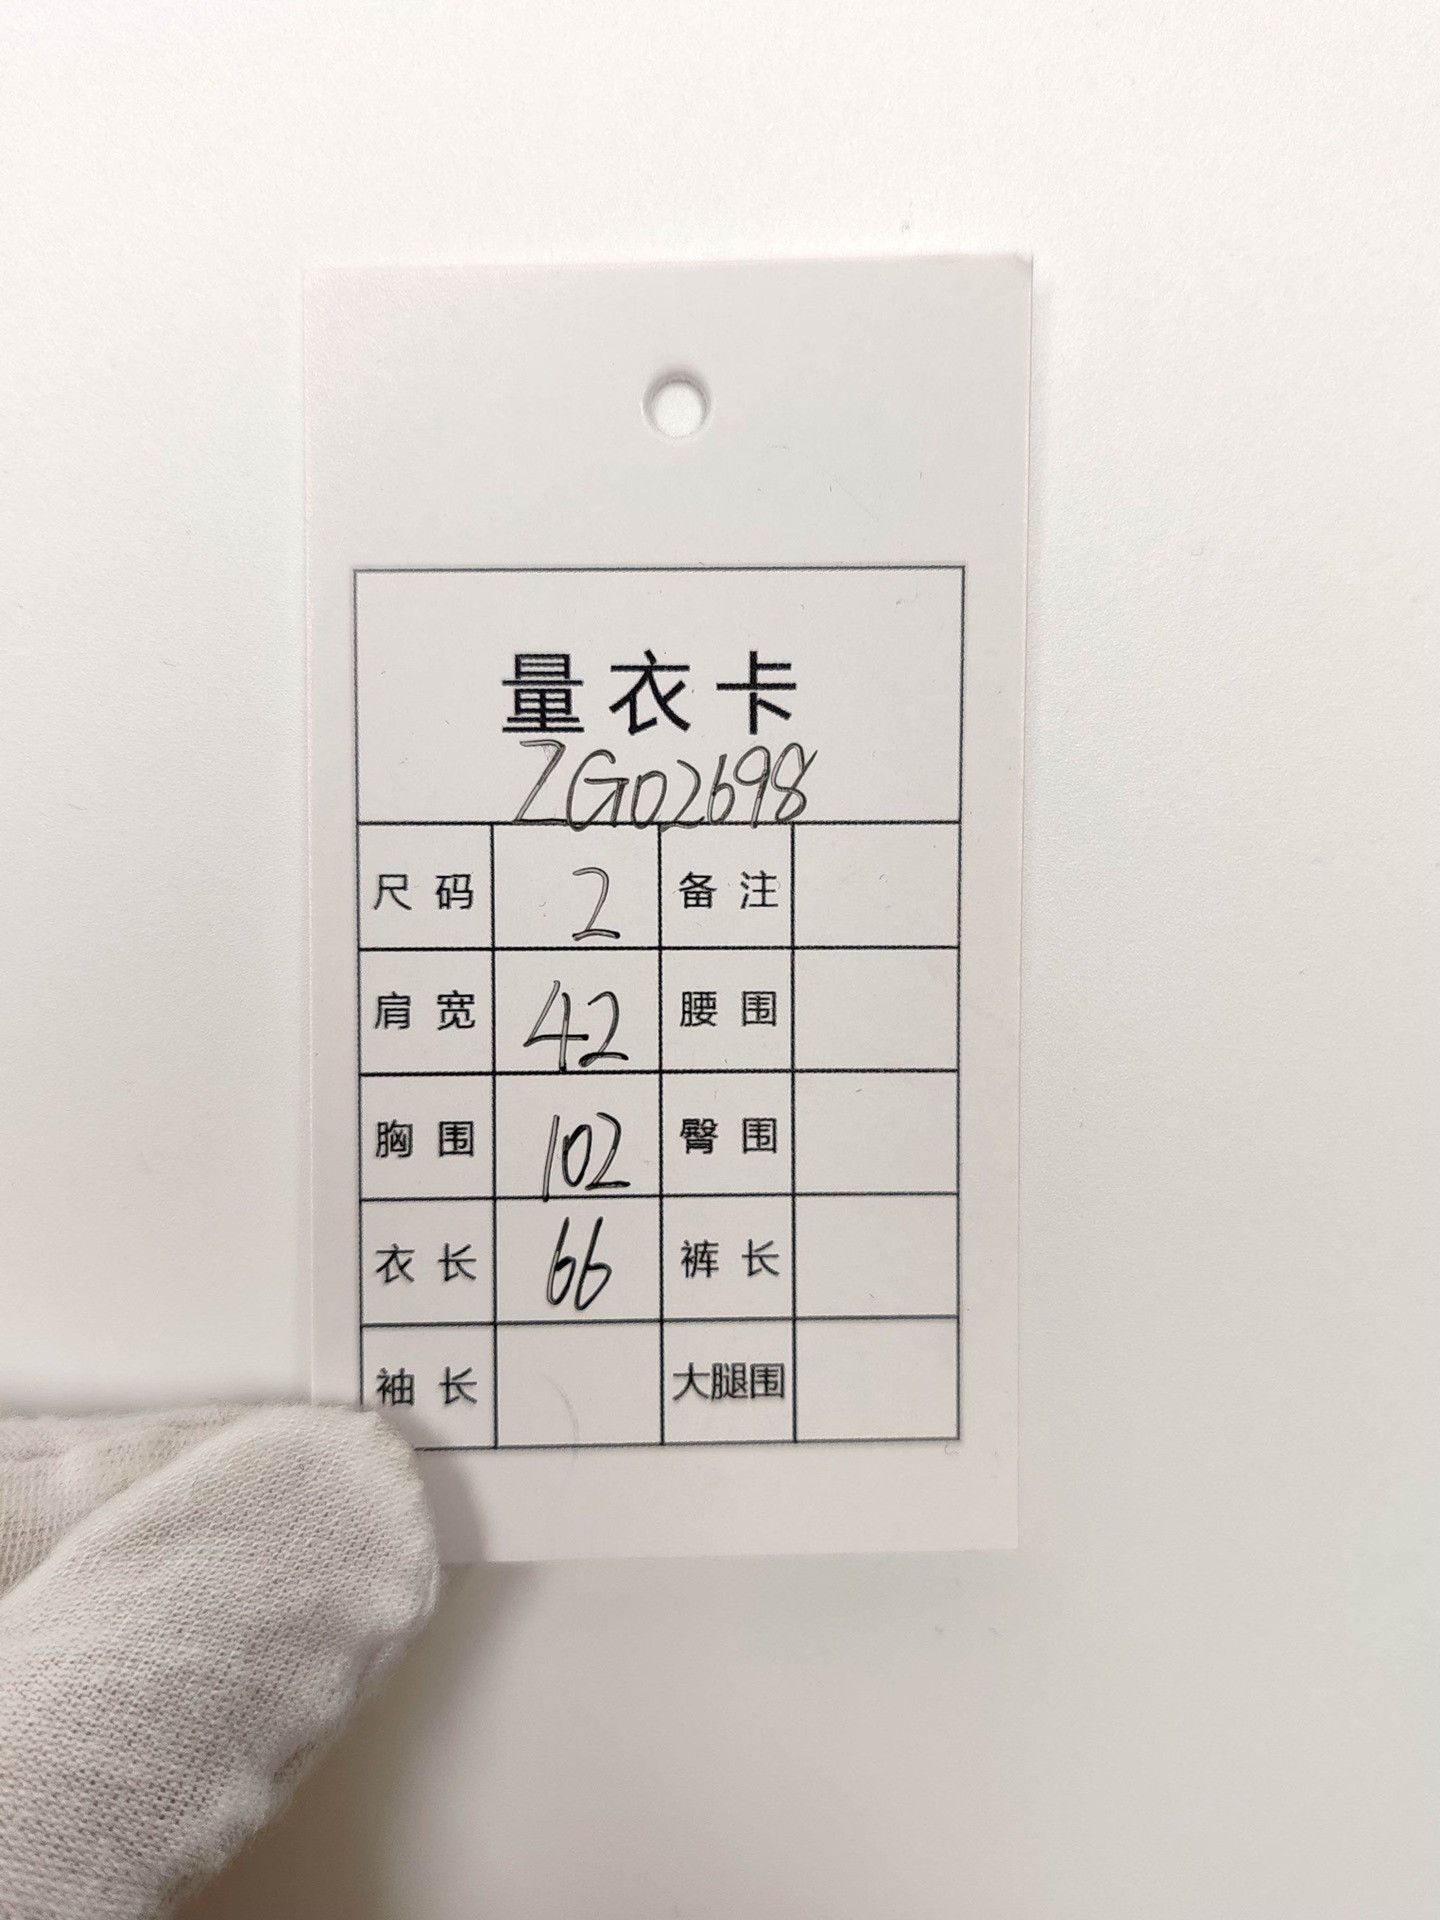 量衣卡
ZG02698
尺码 2 备注
肩宽 42 腰围
胸围 102 臀围
衣长 66 裤长
袖长 大腿围